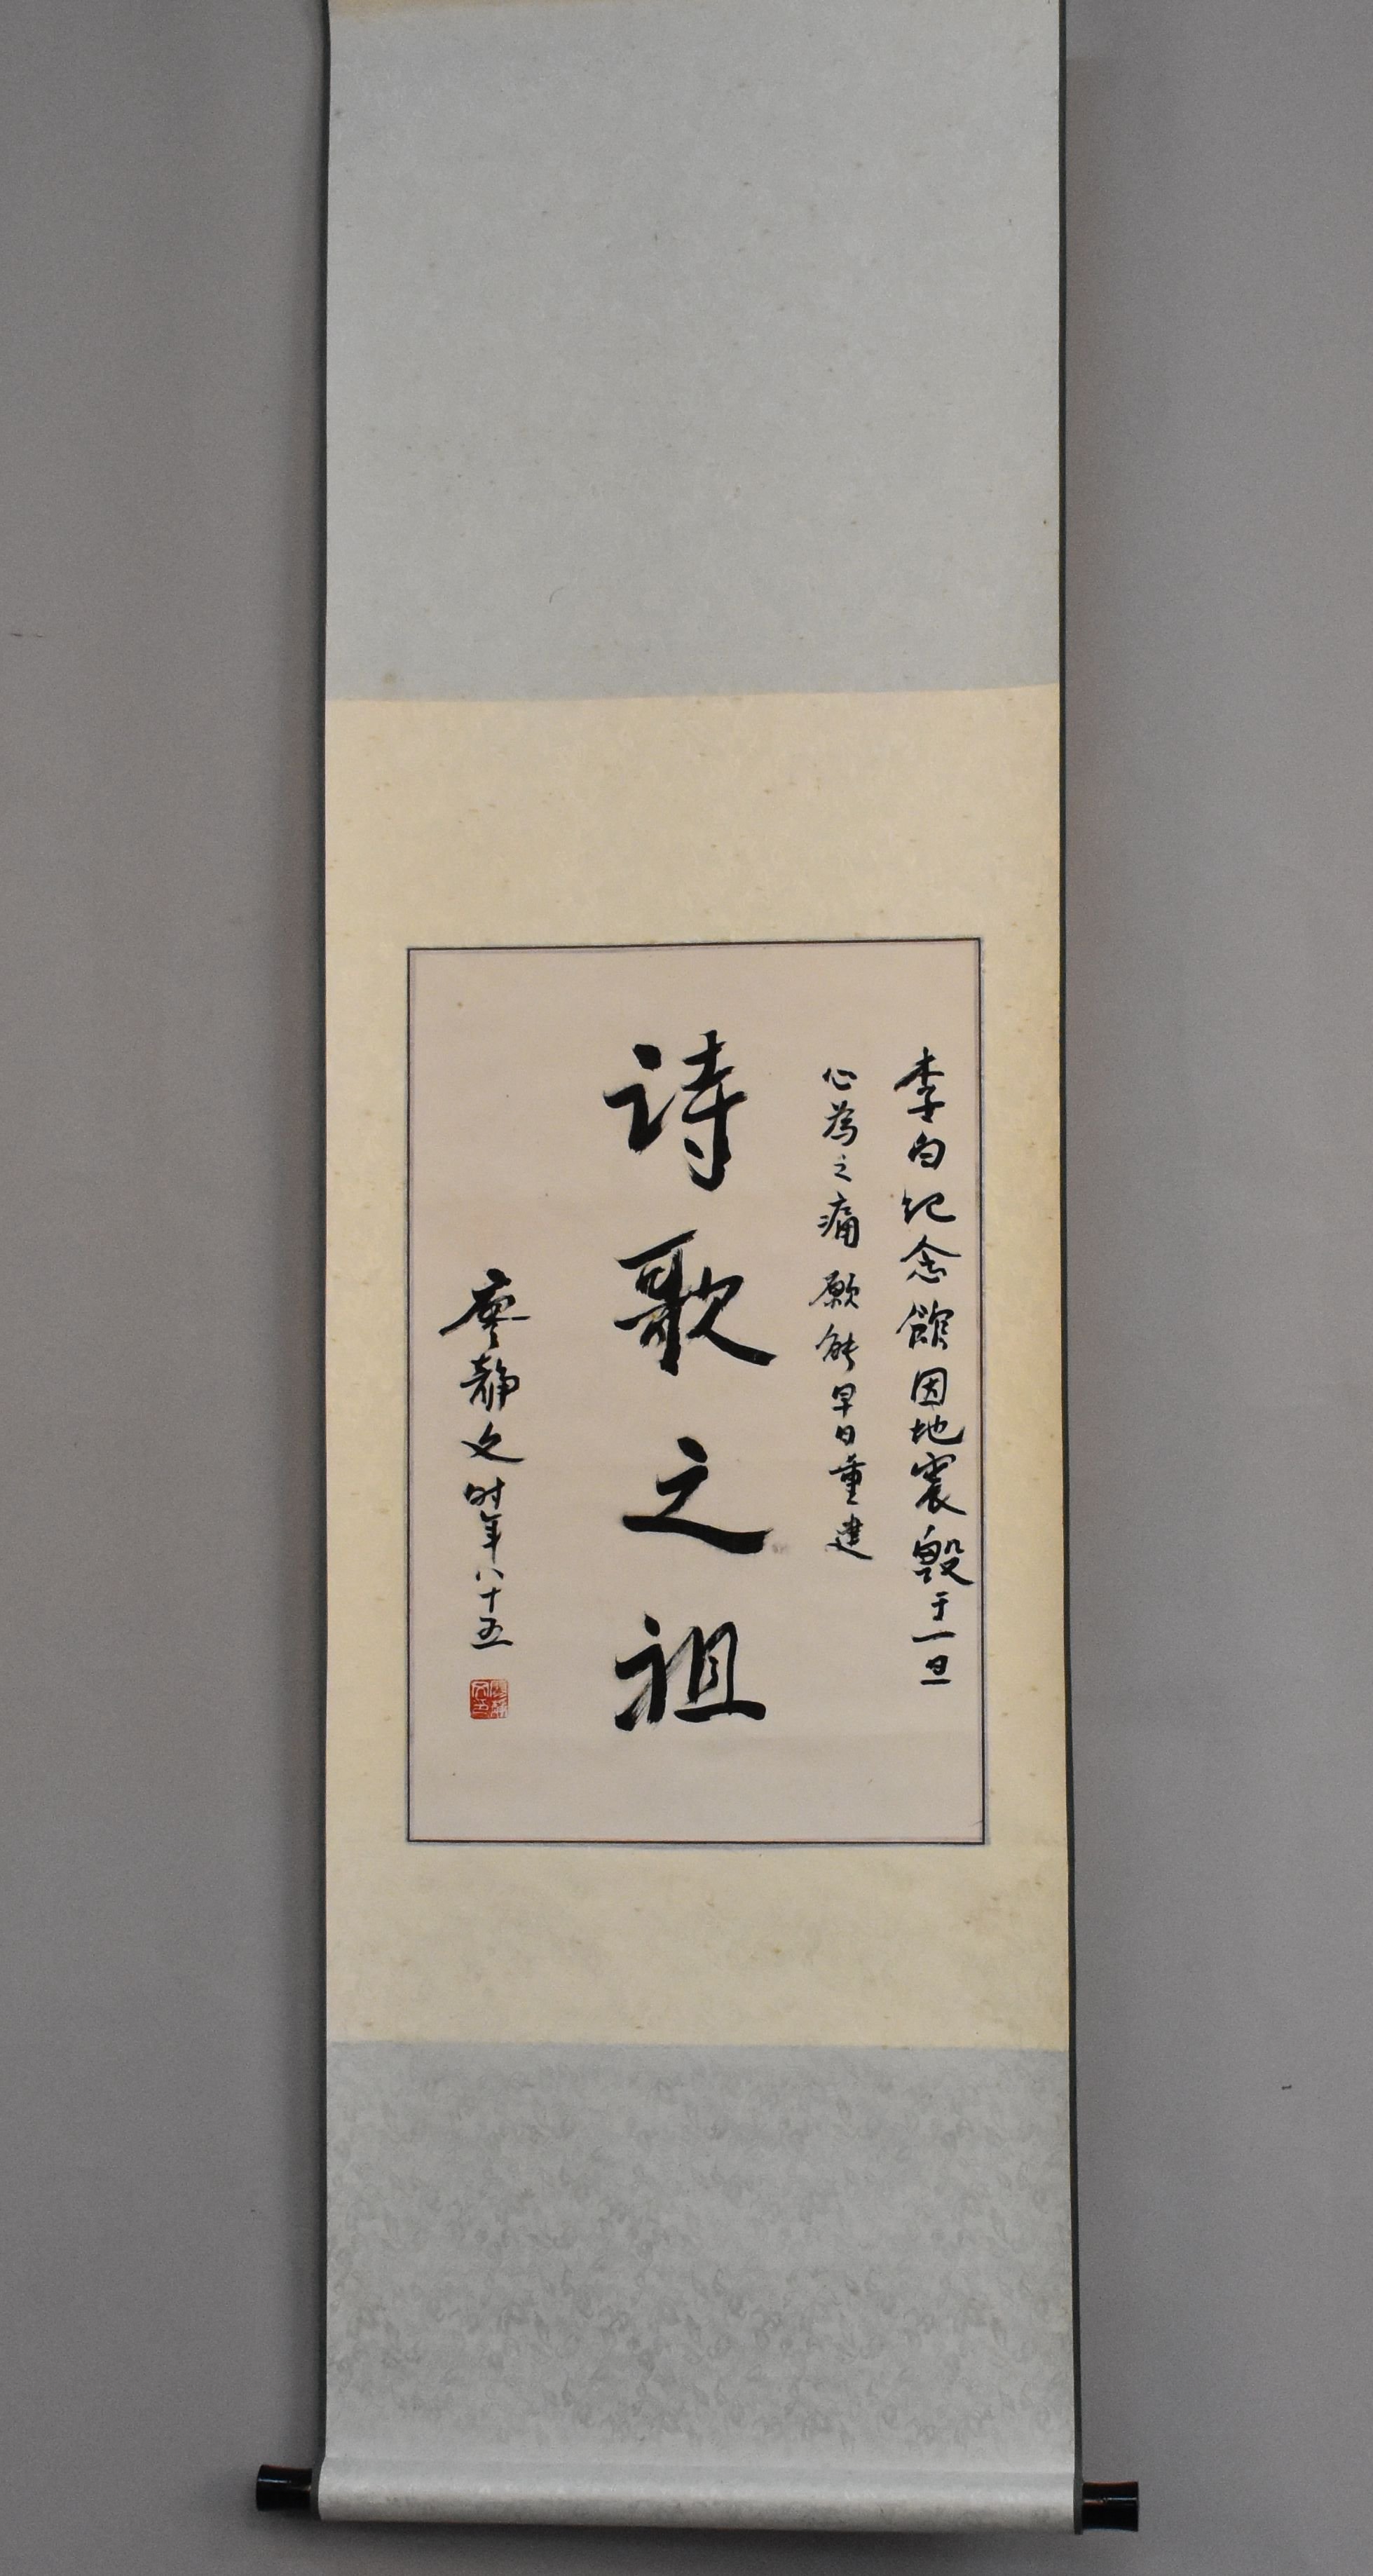 李白纪念館因地震毁于一旦
心為之痛 愿能早日重建
诗歌之祖
廖静文时年八十五